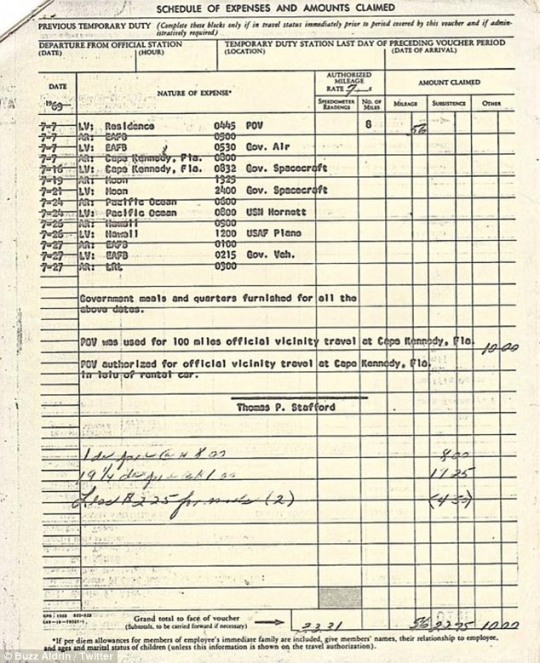 SCHEDULE OF EXPENSES AND AMOUNTS CLAIMED
PREVIOUS TEMPORARY DUTY (Complete these blocks only if in travel status immediately prior to period covered by this voucher and if administratively required.)
DEPARTURE FROM OFFICIAL STATION
(DATE) (HOUR)
TEMPORARY DUTY STATION LAST DAY OF PRECEDING VOUCHER PERIOD
(LOCATION) (DATE OF ARRIVAL)
DATE
1969
NATURE OF EXPENSE*
AUTHORIZED MILEAGE RATE 7
SPEEDOMETER READINGS
NO. OF MILES
AMOUNT CLAIMED
MILEAGE SUBSISTENCE OTHER
7-7 LV: Residence 0445 POV 8 56
7-7 AR: EAFB 0500
7-7 LV: EAFB 0530 Gov. Air
7-7 AR: Cape Kennedy, Fla. 0800
7-16 LV: Cape Kennedy, Fla. 0832 Gov. Spacecraft
7-19 AR: Moon 1325
7-21 LV: Moon 2400 Gov. Spacecraft
7-24 AR: Pacific Ocean 0600
7-24 LV: Pacific Ocean 0800 USN Hornett
7-26 AR: Hawaii 0900
7-26 LV: Hawaii 1200 USAF Plane
7-27 AR: EAFB 0100
7-27 LV: EAFB 0215 Gov. Veh.
7-27 AR: LRL 0300
Government meals and quarters furnished for all the
above dates.
POV was used for 100 miles official vicinity travel at Cape Kennedy, Fla. 10.00
POV authorized for official vicinity travel at Cape Kennedy, Fla.
in leiu of rental car.
Thomas P. Stafford
1 day 8.00 8.00
19 1/4 days 1.00 19.25
Less 2.25 for meals (2) (4.50)
Grand total to face of voucher
(Subtotals, to be carried forward if necessary)
33.31 56 22.75 10.00
*If per diem allowances for members of employee's immediate family are included, give members' names, their relationship to employee,
and ages and marital status of children (unless this information is shown on the travel authorization).
© Buzz Aldrin / Twitter